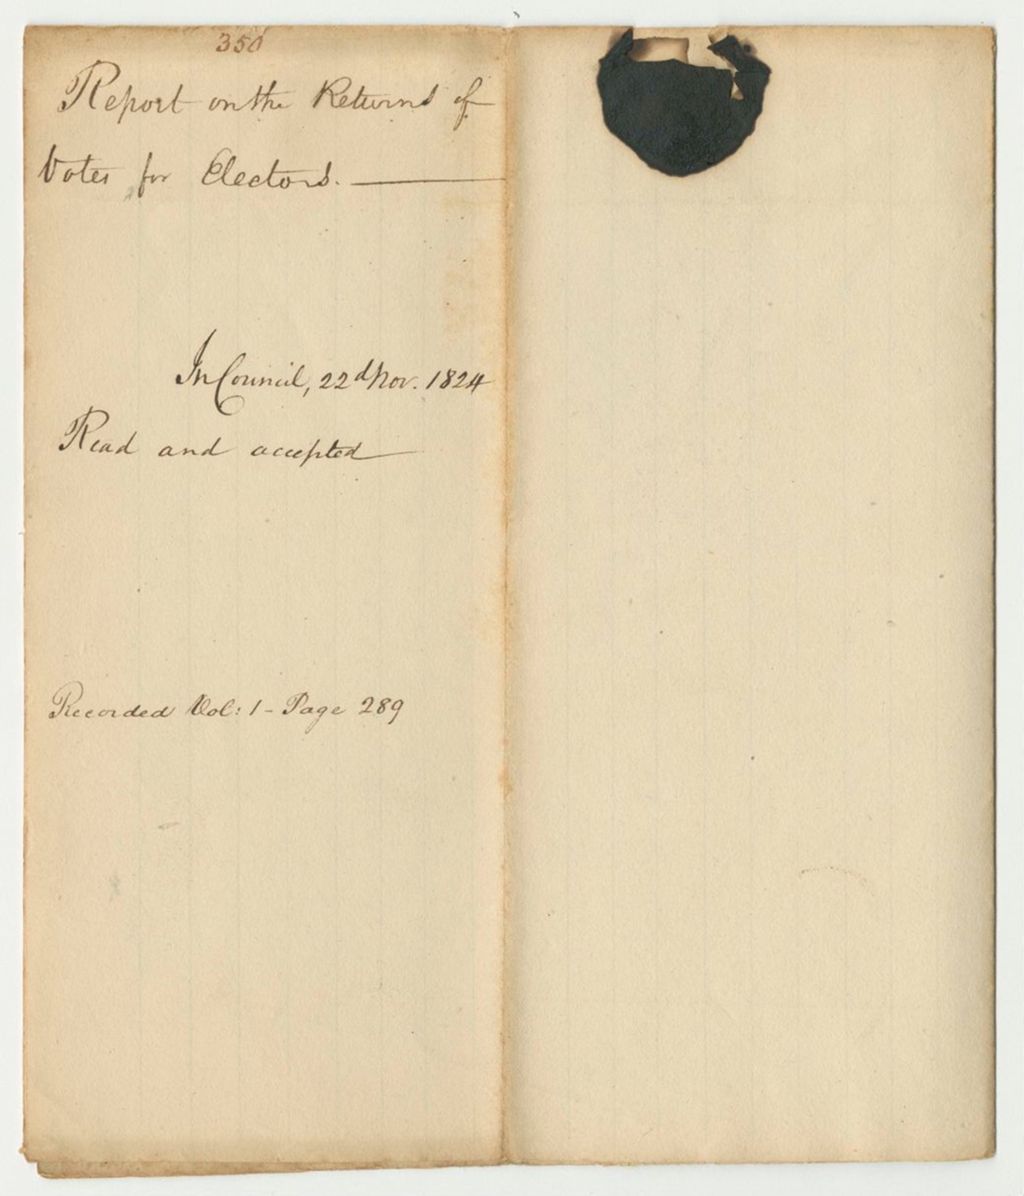 350
Report on the Returns of
Votes for Electors.
In Council, 22d Nov. 1824
Read and accepted
Recorded Vol: 1 - Page 289